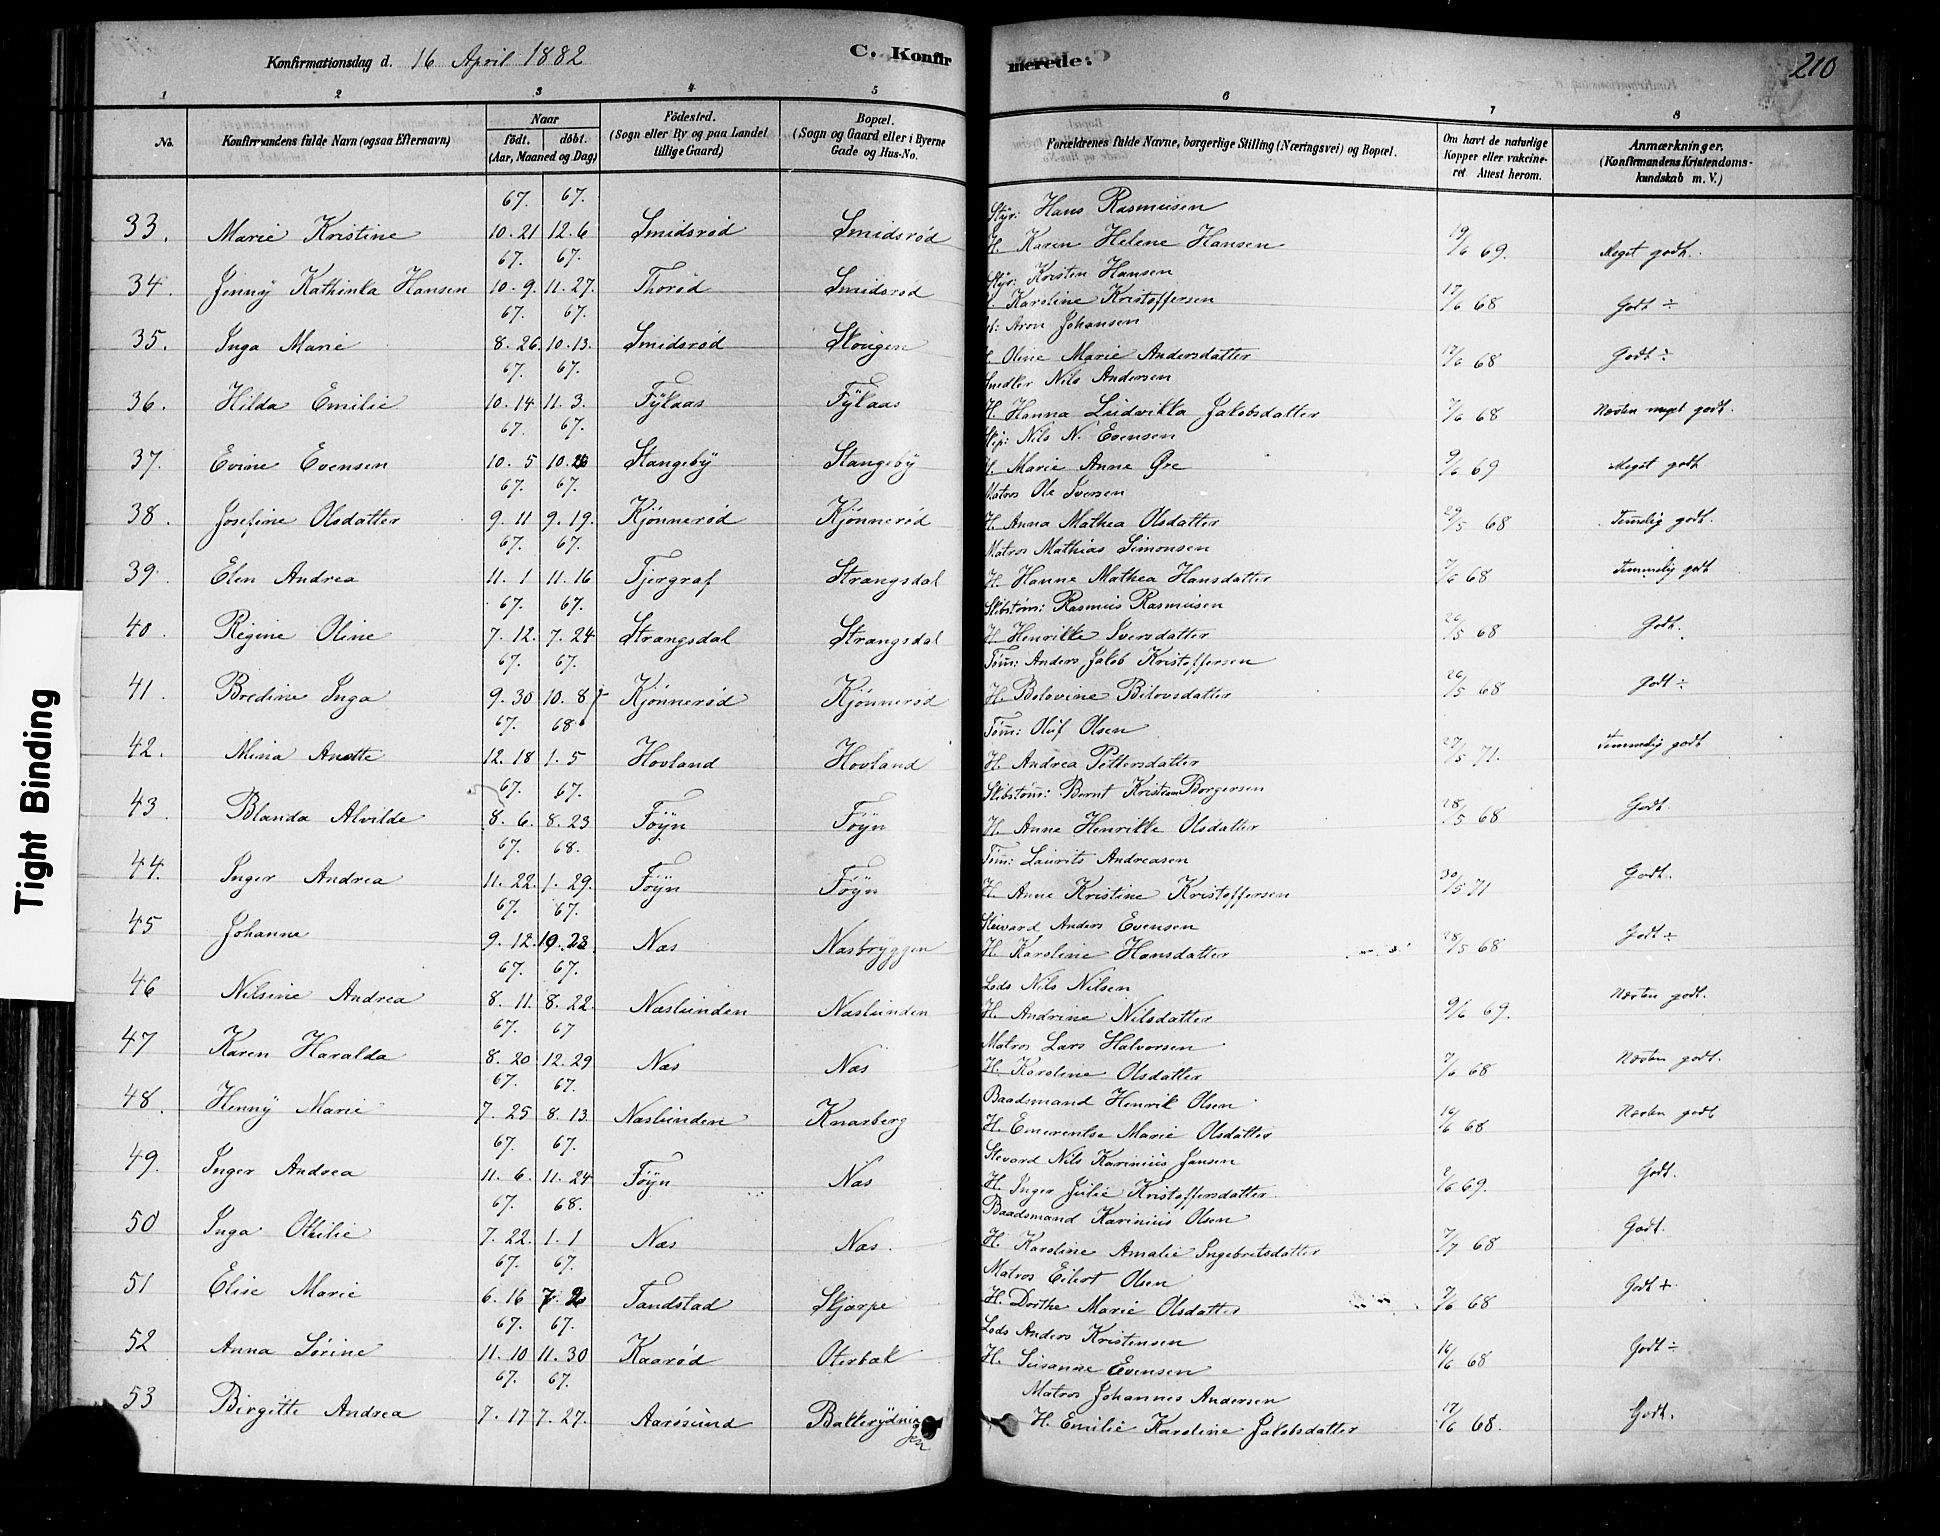 Konfirmationsdag d. 16 April 1882
C. Konfirmerede.
210
1 2 3 4 5 6 7 8
No. Konfirmandens fulde Navn (ogsaa Efternavn) Naar født. døbt. (Aar, Maaned og Dag) Fødested. (Sogn eller By og paa Landet tillige Gaard) Bopæl. (Sogn og Gaard eller i Byerne Gade og Hus-No. Forældrenes fulde Navne, borgerlige Stilling (Næringsvei) og Bopæl. Om havt de naturlige Kopper eller vakcineret Attest herom. Anmærkninger. (Konfirmandens Kristendomskundskab m. V.)
67. 67. Styr: Hans Rasmusen
33. Marie Kristine 10. 21 12. 6 Smidsrød Smidsrød H. Karen Helene Hansen 19/6 69. Meget godt.
67. 67. Styr: Kristen Hansen
34. Jenny Kathinka Hansen 10. 9. 11. 27. Thorød Smidsrød H. Karoline Kristoffersen 17/6 68 Godt ÷
67. 67. Aron Johansen
35. Inga Marie 8. 26. 10. 13. Smidsrød Skougen H. Oline Marie Andersdatter 17/6 68 Godt ÷
67. 67. Snedker Nils Andersen
36. Hilda Emilie 10. 14 11. 3. Fylaas Fylaas H. Hanna Ludvikka Jakobsdatter 7/6 68 Næsten meget godt.
67. 67. Skip: Nils N. Evensen
37. Evine Evensen 10. 5 10. 26 Stangeby Stangeby H. Marie Anne Øre 9/6 69 Meget godt
67. 67. Matros Ole Iversen
38. Josefine Olsdatter 9. 11 9. 19. Kjønnerød Kjønnerød H. Anna Mathea Olsdatter 29/5 68 Temmelig godt.
67. 67. Matros Mathias Simonsen
39. Elen Andrea 11. 1 11. 16 Fjergraf Strangsdal H. Hanne Mathea Hansdatter 7/6 68 Temmelig godt
67. 67. Skibstøm: Rasmus Rasmusen
40. Regine Oline 7. 12. 7. 24 Strangsdal Strangsdal H. Henrikke Iversdatter 26/5 68 Godt.
67. 67. Tøm: Anders Jakob Kristoffersen
41. Bredine Inga 9. 30 10. 8 Kjønnerød Kjønnerød H. Bolovine 26/5 68 Godt ÷
67. 68. Tøm: Oluf Olsen
42. Mina Anette 12. 18 1. 5 Hovland Hovland H. Andrea Pettersdatter 27/5 71. Temmelig godt
67. 67. Skibstøm: Bernt Kristian Borgersen
43 Blanda Alvilde 8. 6. 8. 23 Føyn Føyn H. Anne Henrikke Olsdatter 28/5 68 Godt.
67. 68. Tøm: Laurits Andreasen
44. Inger Andrea 11. 22. 1. 29. Føyn Føyn H. Anne Kristine Kristoffersen 30/5 71 Godt.
67. 67. Steward Anders Evensen
45 Johanne 9. 12. 10. 23 Næs Næsbryggen H. Karoline Hansdatter 28/5 68 Godt ÷
67. 67. Lods Nils Nilsen
46 Nilsine Andrea 8. 11. 8. 22. Næslunden Næslunden H. Andrine Nilsdatter 9/6 69. Næsten godt.
67. 67 Matros Lars Halvorsen
47 Karen Haralda 8. 20 12. 29 Næs Næs H. Karoline Olsdatter 7/6 68 Næsten godt.
67. 67. Baadsmand Henrik Olsen
48. Henny Marie 7. 25 8. 13. Næslunden Knarberg H. Emerentse Marie Olsdatter 16/6 68 Næsten godt
67. 67. Stevard Nils Karinius Jansen
49. Inger Andrea 11. 6. 11. 24 Føyn Næs H. Inger Julie Kristoffersdatter. 2/6 69. Godt.
67. 68. Baadsmand Karinius Olsen
50 Inga Othilie 7. 22. 1. 1 Næs Næs. H. Karoline Amalie Ingebretsdatter 7/7 68 Godt.
67. 67. Matros Eilert Olsen
51 Elise Marie 6. 16 7. 2 Tandstad Skjærpe H. Dorthe Marie Olsdatter 7/6 68 Godt +
67. 67. Lods Anders Kristensen
52 Anna Sørine 11. 10 11. 30 Kaarød Oterbæk H. Susanne Evensen 16/6 68 Godt ÷
67. 67. Matros Johannes Andersen
53 Birgitte Andrea 7. 17 7. 27. Aarøsund H. Emilie Karoline Jakobsdatter 17/6 68. Godt.
Tight Binding